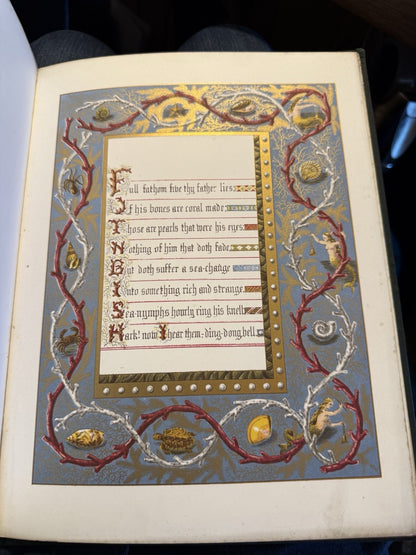 Full fathom five thy father lies:
Of his bones are coral made:
Those are pearls that were his eyes:
Nothing of him that doth fade,
But doth suffer a sea-change
Into something rich and strange.
Sea-nymphs hourly ring his knell
Hark! now I hear them: ding-dong, bell.